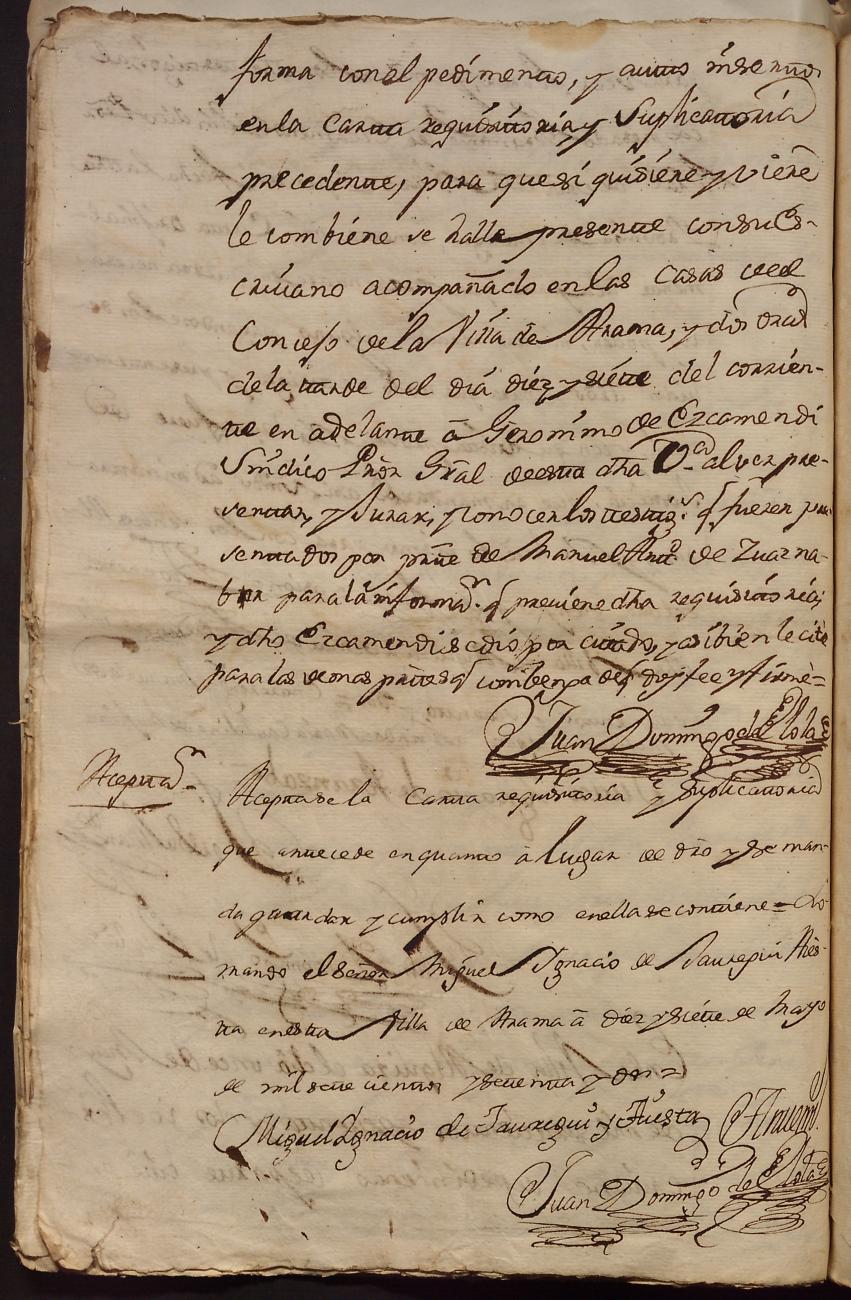 forma con el pedimento, y autos insertos
en la Carta requisitoria, y Suplicattoria
precedente, para que si quisiere y viere
le combiene se halle presente con su Es-
crivano acompañado en las Casas de el
Concejo de la Villa de Arama, y dos oras
de la tarde del dia diez y siete del corrien-
te en adelante â Geronimo de Ezcamendi
Sindico Prôr Grâl de esta dha Vª al ver pre-
sentar, y Jurar, y conocer los testigˢ q̃ fueren pre
sentados por parte de Manuel Antº de Zuazna-
bar para la informaⁿ q̃ previene dha requisitoria,
y dho Ezcamendi se dio por citado, y asibien le cite
para las demas partes q̃ combenga de q̃ doy fee y firmè=
Juan Domingo de Elola
Aceptaⁿ
Aceptase la Carta requisitoria y Suplicattoria
que antecede en quanto â lugar de dro y se man-
da guardar y cumplir como en ella se contiene= Lo
mando el Señor Miguel Ygnacio de Jauregui Ales-
ta en esta Villa de Arama â diez y siete de Mayo
de mil sete cientos y setenta y dos=
Miguel Ygnacio de Jauregui y Austa Antemi
Juan Domingo de Elola